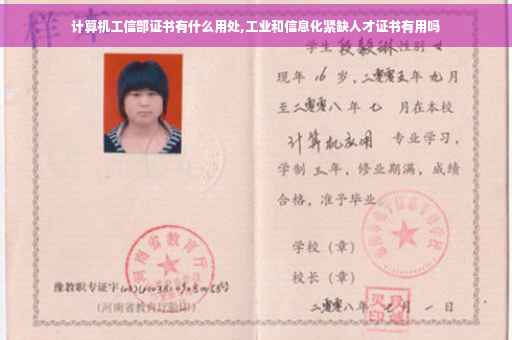 计算机工信部证书有什么用处,工业和信息化紧缺人才证书有用吗
样
学生 段毅琳 性别 女
现年 16 岁,二零零五年 九月
至二零零八年 七 月在本校
计算机应用 专业学习,
学制 三年,修业期满,成绩
合格,准予毕业
学校(章)
校长(章)
河南省教育厅
豫教职专证字
(河南省教育厅验印)
二零零八年 月 一 日